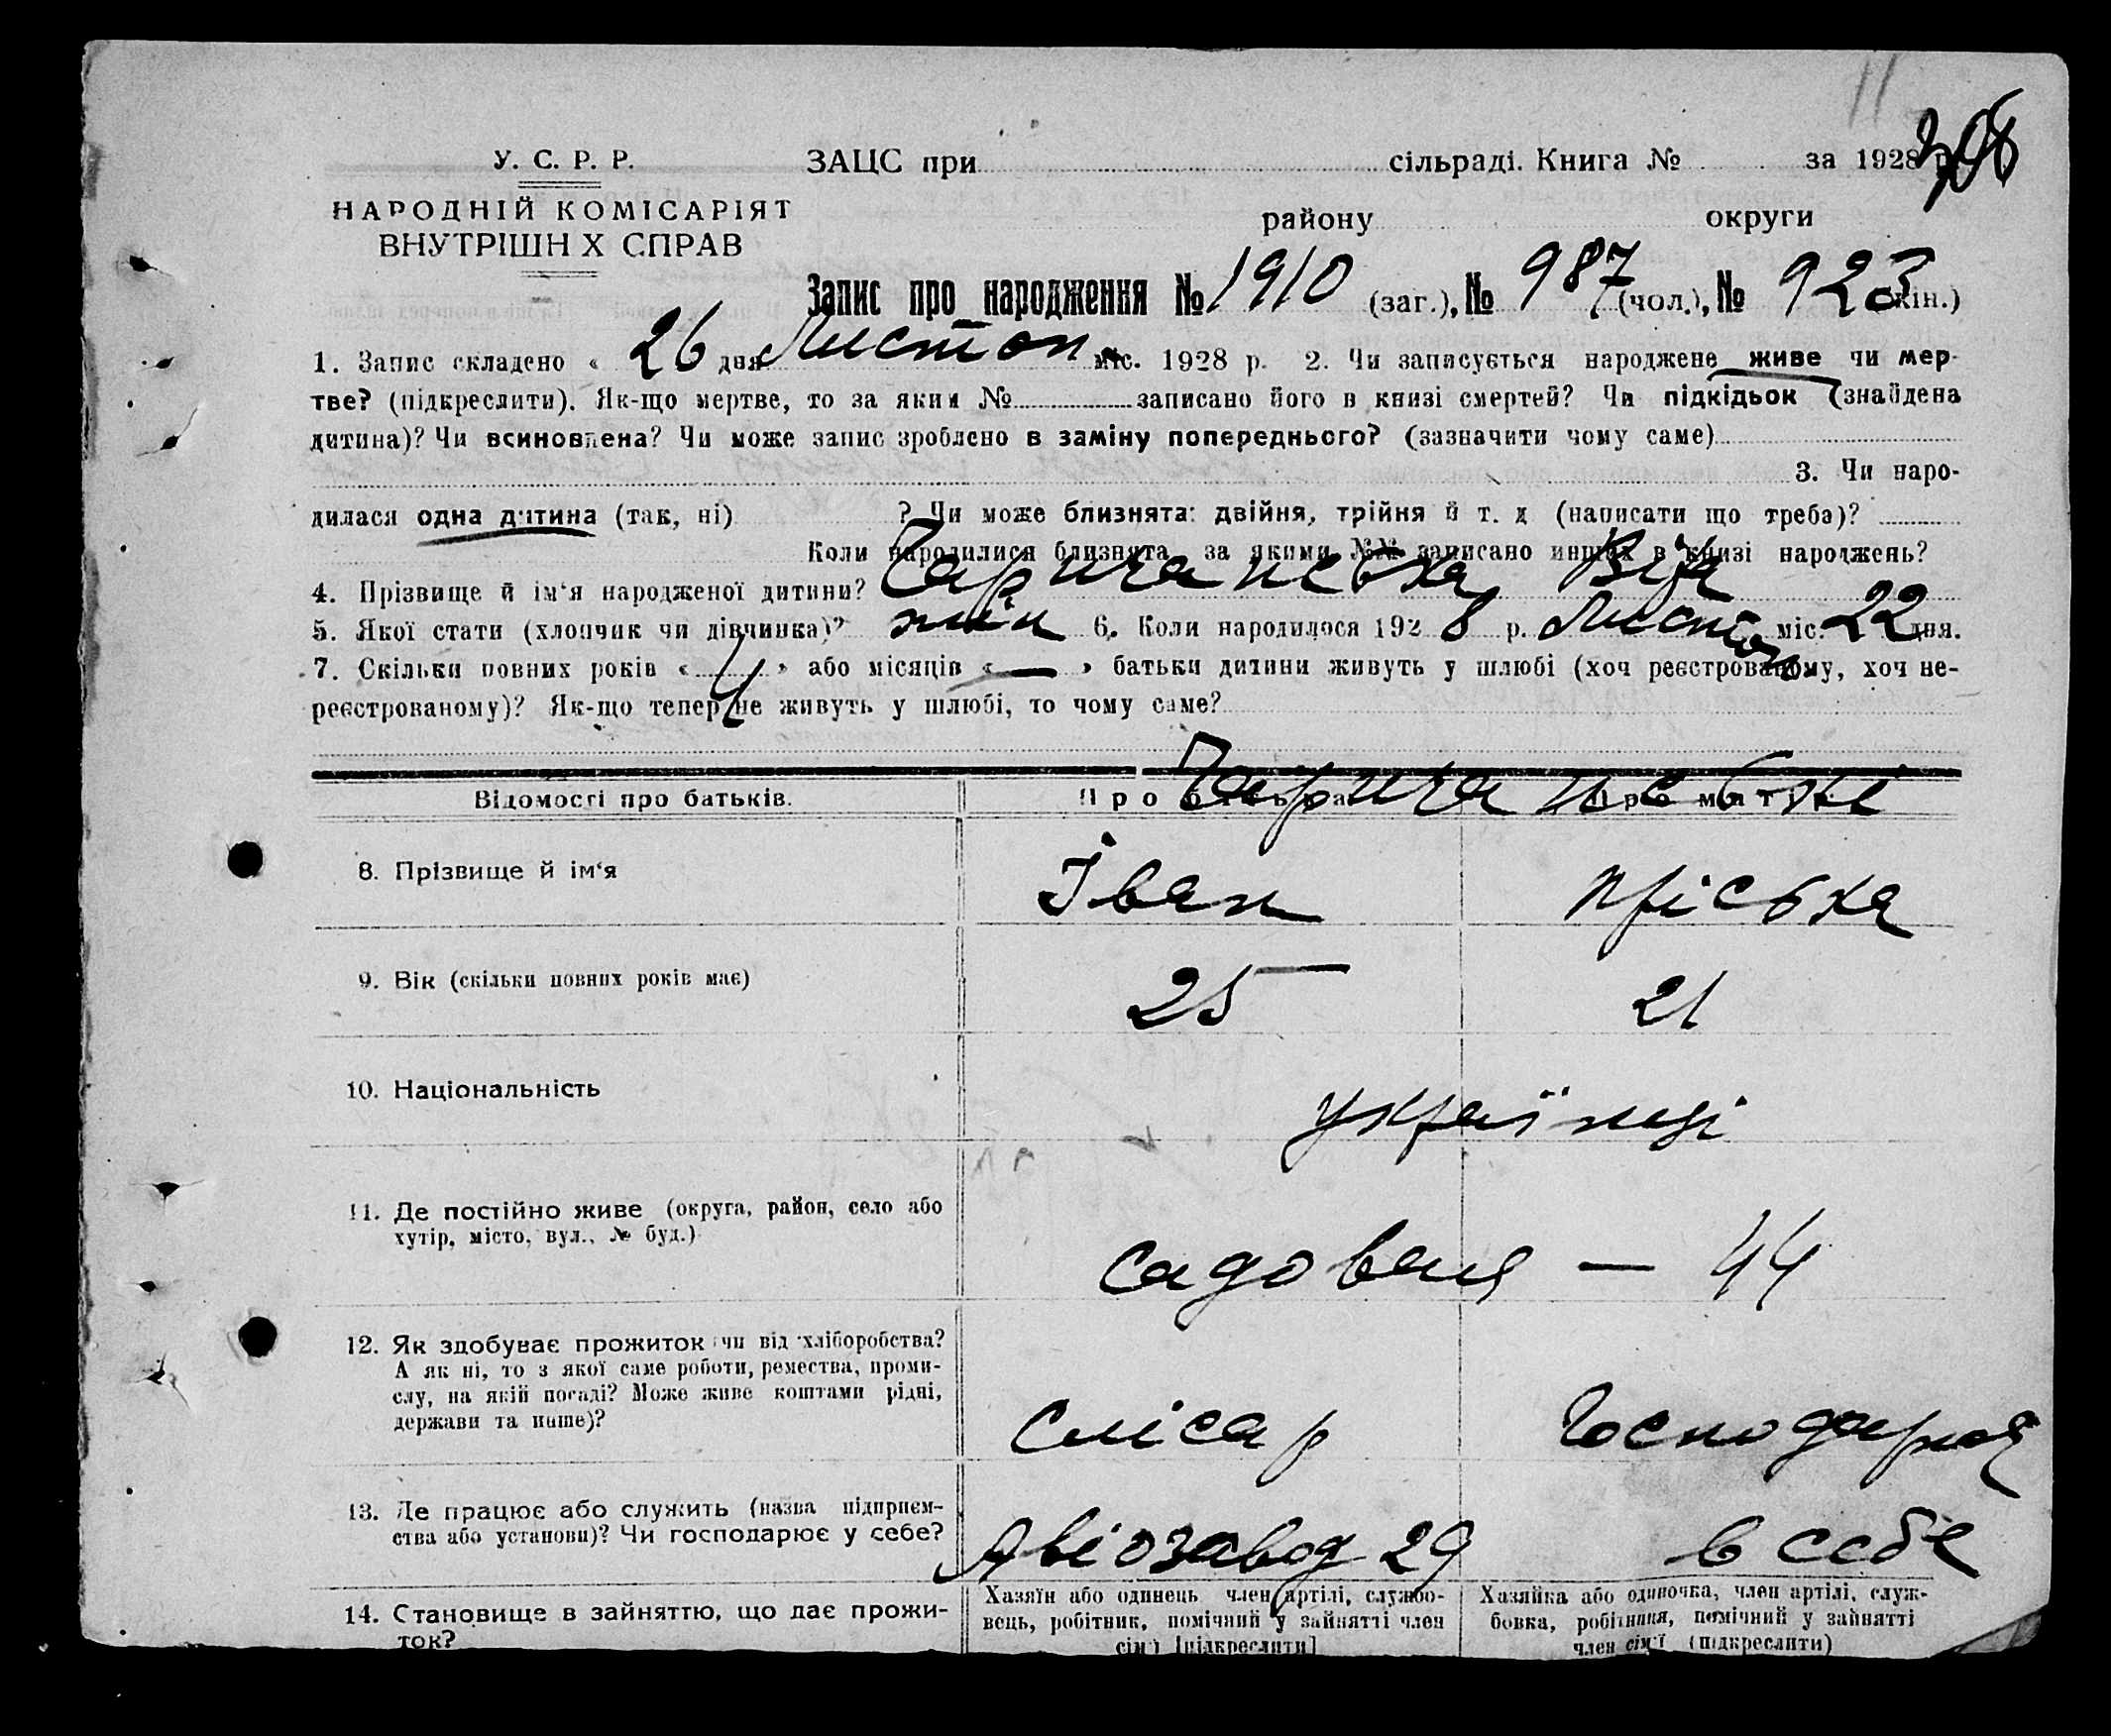 11
306
У. С. Р. Р.
НАРОДНІЙ КОМІСАРІЯТ
ВНУТРІШН Х СПРАВ
ЗАЦС при сільраді. Книга № за 1928 р.
району округи
Запис про народження № 1910 (заг.), № 987 (чол.), № 923 (жін.)
1. Запис складено « 26 дня Листоп. міс. 1928 р. 2. Чи записується народжене живе чи мер-
тве? (підкреслити). Як-що мертве, то за яким № записано його в книзі смертей? Чи підкідьок (знайдена
дитина)? Чи всиновлена? Чи може запис зроблено в заміну попереднього? (зазначити чому саме)
3. Чи наро-
дилася одна дитина (так, ні) ? Чи може близнята: двійня, трійня й т. д (написати що треба)?
Коли народилися близнята, за якими №№ записано инших в книзі народжень?
4. Прізвище й ім'я народженої дитини? Чаричанська Віра
5. Якої стати (хлопчик чи дівчинка)? жін 6. Коли народилося 1928 р. Листоп міс. 22 дня.
7. Скільки повних років « 4 » або місяців « — » батьки дитини живуть у шлюбі (хоч реєстрованому, хоч не-
реєстрованому)? Як-що тепер не живуть у шлюбі, то чому саме?
Чаричанські
Відомості про батьків. Про батька Про матір
8. Прізвище й ім'я Іван Пріська
9. Вік (скільки повних років має) 25 21
10. Національність українці
11. Де постійно живе (округа, район, село або
хутір, місто, вул., № буд.)
Садовая — 44
12. Як здобуває прожиток чи від хліборобства?
А як ні, то з якої саме роботи, ремества, проми-
слу, на якій посаді? Може живе коштами рідні,
держави та инше)?
Слісар Господарка
13. Де працює або служить (назва підприєм-
ства або установи)? Чи господарює у себе?
Авіозавод 29 в себе
14. Становище в зайняттю, що дає прожи-
ток?
Хазяїн або одинець член артілі, службо-
вець, робітник, помічний у зайнятті член
сім'ї [підкреслити]
Хазяйка або одиночка, член артілі, служ-
бовка, робітниця, помічний у зайнятті
член сім'ї (підкреслити)